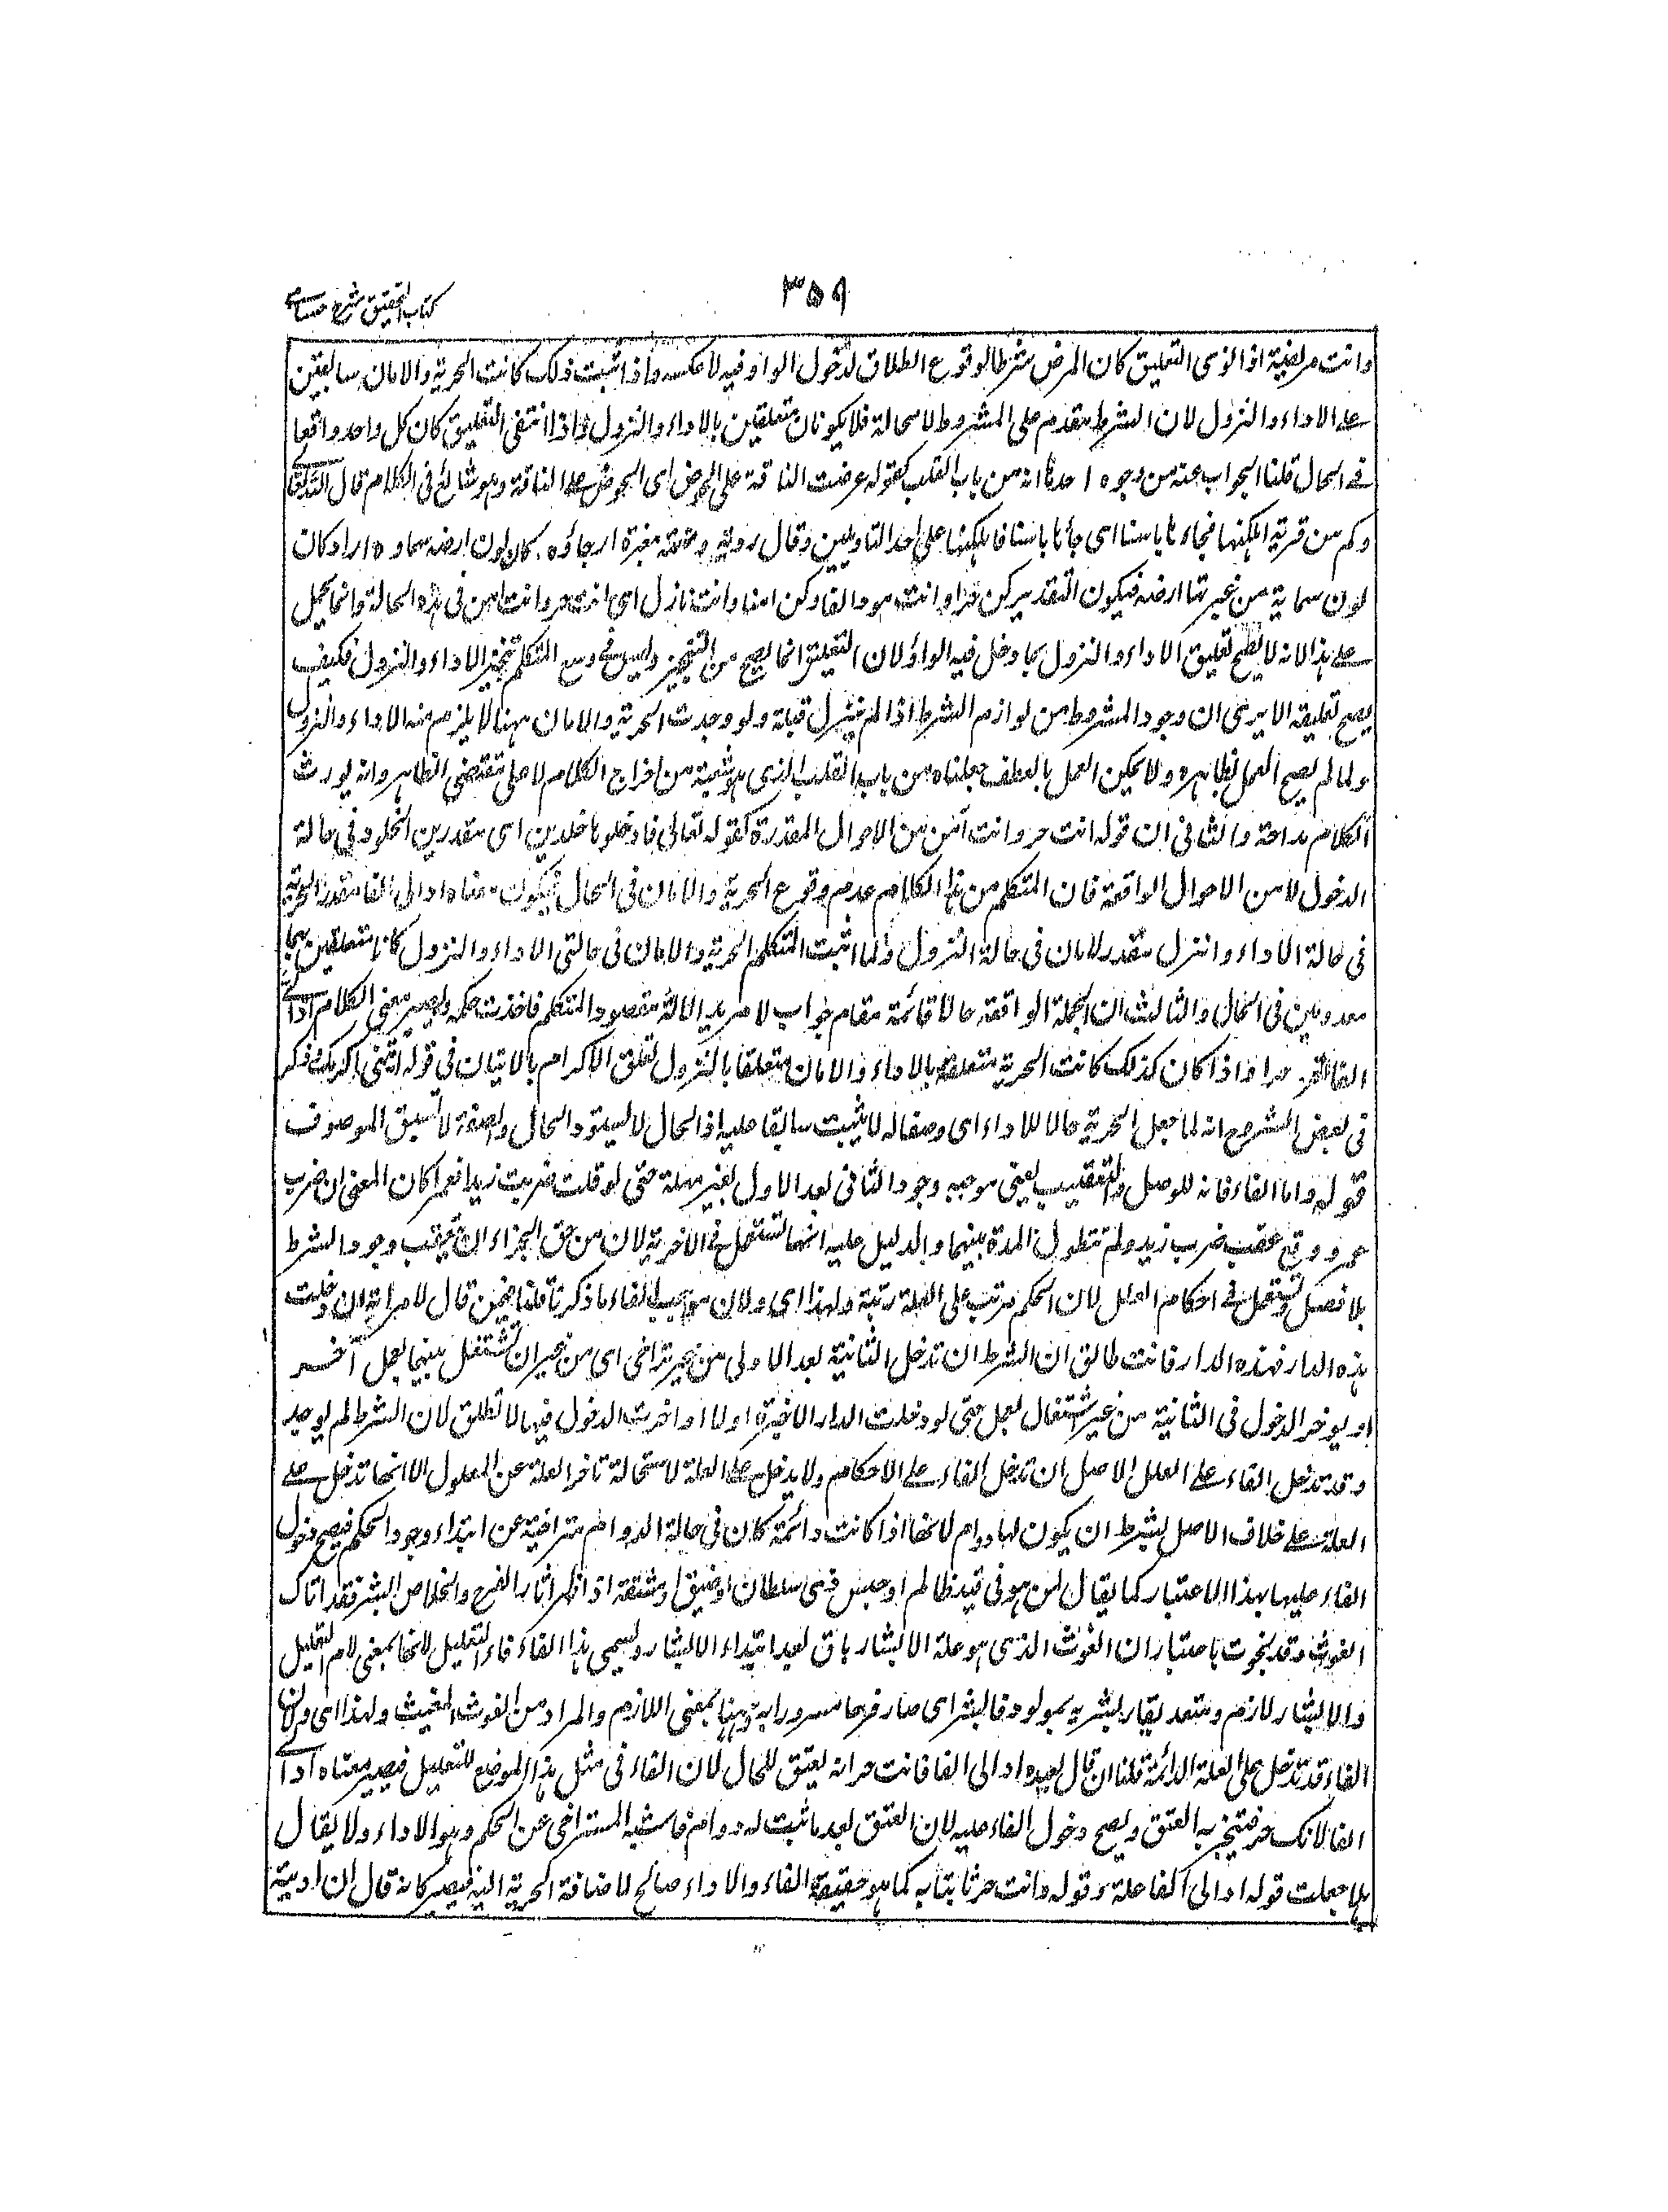 ۳۵۹
كتاب التحقيق شرح حسامى
وانت مريضة اذا نوى التعليق كان المرض شرطا لوقوع الطلاق لدخول الواو فيه لا عكسه واذا ثبت ذلك كانت الحرية والامان سابقين
على الاداء والنزول لان الشرط مقدم على المشروط لا محالة فلا يكونان متعلقين بالاداء والنزول واذا انتفى التعليق كان كل واحد واقعا
فى الحال قلنا الجواب عنه من وجوه احدها انه من باب القلب كقوله عرضت الناقة على الحوض اى الحوض على الناقة وهو شائع فى الكلام قال الله تعالى
وكم من قرية اهلكنها فجاءها باسنا اى جاءها باسنا فاهلكنها على احد التاويلين وقال روبة ومهمه مغبرة ارجاؤه كان لون ارضه سماوه اراد كان
لون سمائه من غبرتها ارضه فيكون التقدير كن حرا وانت مود الفا وكن امنا وانت نازل اى انت حر وانت امن فى هذه الحالة وانما يحمل
على هذا لانه لا يصح تعليق الاداء والنزول بما دخل فيه الواو لان التعليق انما يصح من التنجيز وليس فى وسع المتكلم تنجيز الاداء والنزول فكيف
يصح تعليقه الا يرى ان وجود المشروط من لوازم الشرط اذا لم ينزل قبله ولو وجدت الحرية والامان ههنا لا يلزم منه الاداء والنزول
ولما لم يصح العمل بظاهره ولا يمكن العمل بالعطف جعلناه من باب القلب الذى هو شعبة من اخراج الكلام لا على مقتضى الظاهر وانه يورث
الكلام ملاحة والثانى ان قوله انت حر وانت آمن من الاحوال المقدرة كقوله تعالى فادخلوها خلدين اى مقدرين الخلود فى حالة
الدخول لا من الاحوال الواقعة فان المتكلم من هذا الكلام عدم وقوع الحرية والامان فى الحال فيكون معناه اد الى الفا مقدرا الحرية
فى حالة الاداء وانزل مقدر الامان فى حالة النزول ولما اثبت المتكلم الحرية والامان فى حالتى الاداء والنزول كانا متعلقين بهما
معدومين فى الحال والثالث ان الجملة الواقعة حالا قائمة مقام جواب الامر بدلالة مقصود المتكلم فاخذت حكمه ويصير معنى الكلام اد الى
الفا تصر حرا واذا كان كذلك كانت الحرية متعلقة بالاداء والامان متعلقا بالنزول تعلق الاكرام بالاتيان فى قوله ائتنى اكرمك وذكر
فى بعض الشروح انه لما جعل الحرية حالا للاداء اى وصفا له لا يثبت سابقا عليه اذ الحال لا يسبق ذا الحال والصفة لا تسبق الموصوف
قوله واما الفاء فانه للوصل والتعقيب يعنى موجبه وجود الثانى بعد الاول بغير مهلة حتى لو قلت ضربت زيدا فعمرا كان المعنى ان ضرب
عمرو وقع عقيب ضرب زيد ولم تتطول المدة بينهما والدليل عليه انها تستعمل فى الاجزية لان من حق الجزاء ان يتعقب وجود الشرط
بلا فصل وتستعمل فى احكام العلل لان الحكم مرتب على العلة رتبة ولهذا اى ولان موجب الفاء ما ذكرنا قلنا فيمن قال لامراته ان دخلت
هذه الدار فهذه الدار فانت طالق ان الشرط ان تدخل الثانية بعد الاولى من غير تراخى اى من غير ان تشتغل بينهما بعمل آخر
او يوخر الدخول فى الثانية من غير اشتغال بعمل حتى لو دخلت الدار الاخيرة اولا او اخرت الدخول فيها لا تطلق لان الشرط لم يوجد
وقد تدخل الفاء على العلل الاصل ان تدخل الفاء على الاحكام ولا يدخل على العلة لاستحالة تاخر العلة عن المعلول الا انها تدخل على
العلة على خلاف الاصل بشرط ان يكون لها دوام لانها اذا كانت دائمة كان فى حالة الدوام متراخية عن ابتداء وجود الحكم فيصح دخول
الفاء عليها بهذا الاعتبار كما يقال لمن هو فى قيد ظالم او حبس ذى سلطان او ضيق او مشقة اذا ظهر اثار الفرح والخلاص ابشر فقد اتاك
الغوث وقد نجوت باعتبار ان الغوث الذى هو علة الابشار باق بعد ابتداء الابشار ويسمى هذا الفاء فاء التعليل لانها بمعنى لام التعليل
والابشار لازم ومتعد يقال بشر به بمولود فابشر اى صار فرحا مسرورا به وههنا بمعنى اللازم والمراد من الغوث المغيث ولهذا اى ولان
الفاء قد تدخل على العلة الدائمة قلنا ان قال لعبده اد الى الفا فانت حر انه يعتق للحال لان الفاء فى مثل هذا الموضع للتعليل فيصير معناه اد الى
الفا لانك حر فتنجز به العتق ويصح دخول الفاء عليه لان العتق بعد ما ثبت له دوام فاشبه المتراخى عن الحكم وهو الاداء ولا يقال
هلا جعلت قوله اد الى الفا علة وقوله وانت حر ثابتا به كما هو حقيقة الفاء والاداء صالح لاضافة الحرية اليه فيصير كانه قال ان اديت